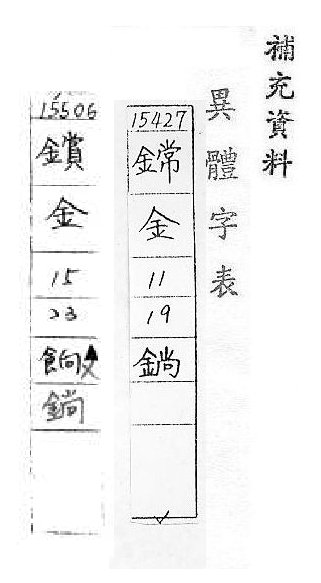 補充資料
異體字表
15427
鏛
金
11
19
鋿
15506
鑜
金
15
23
鋿